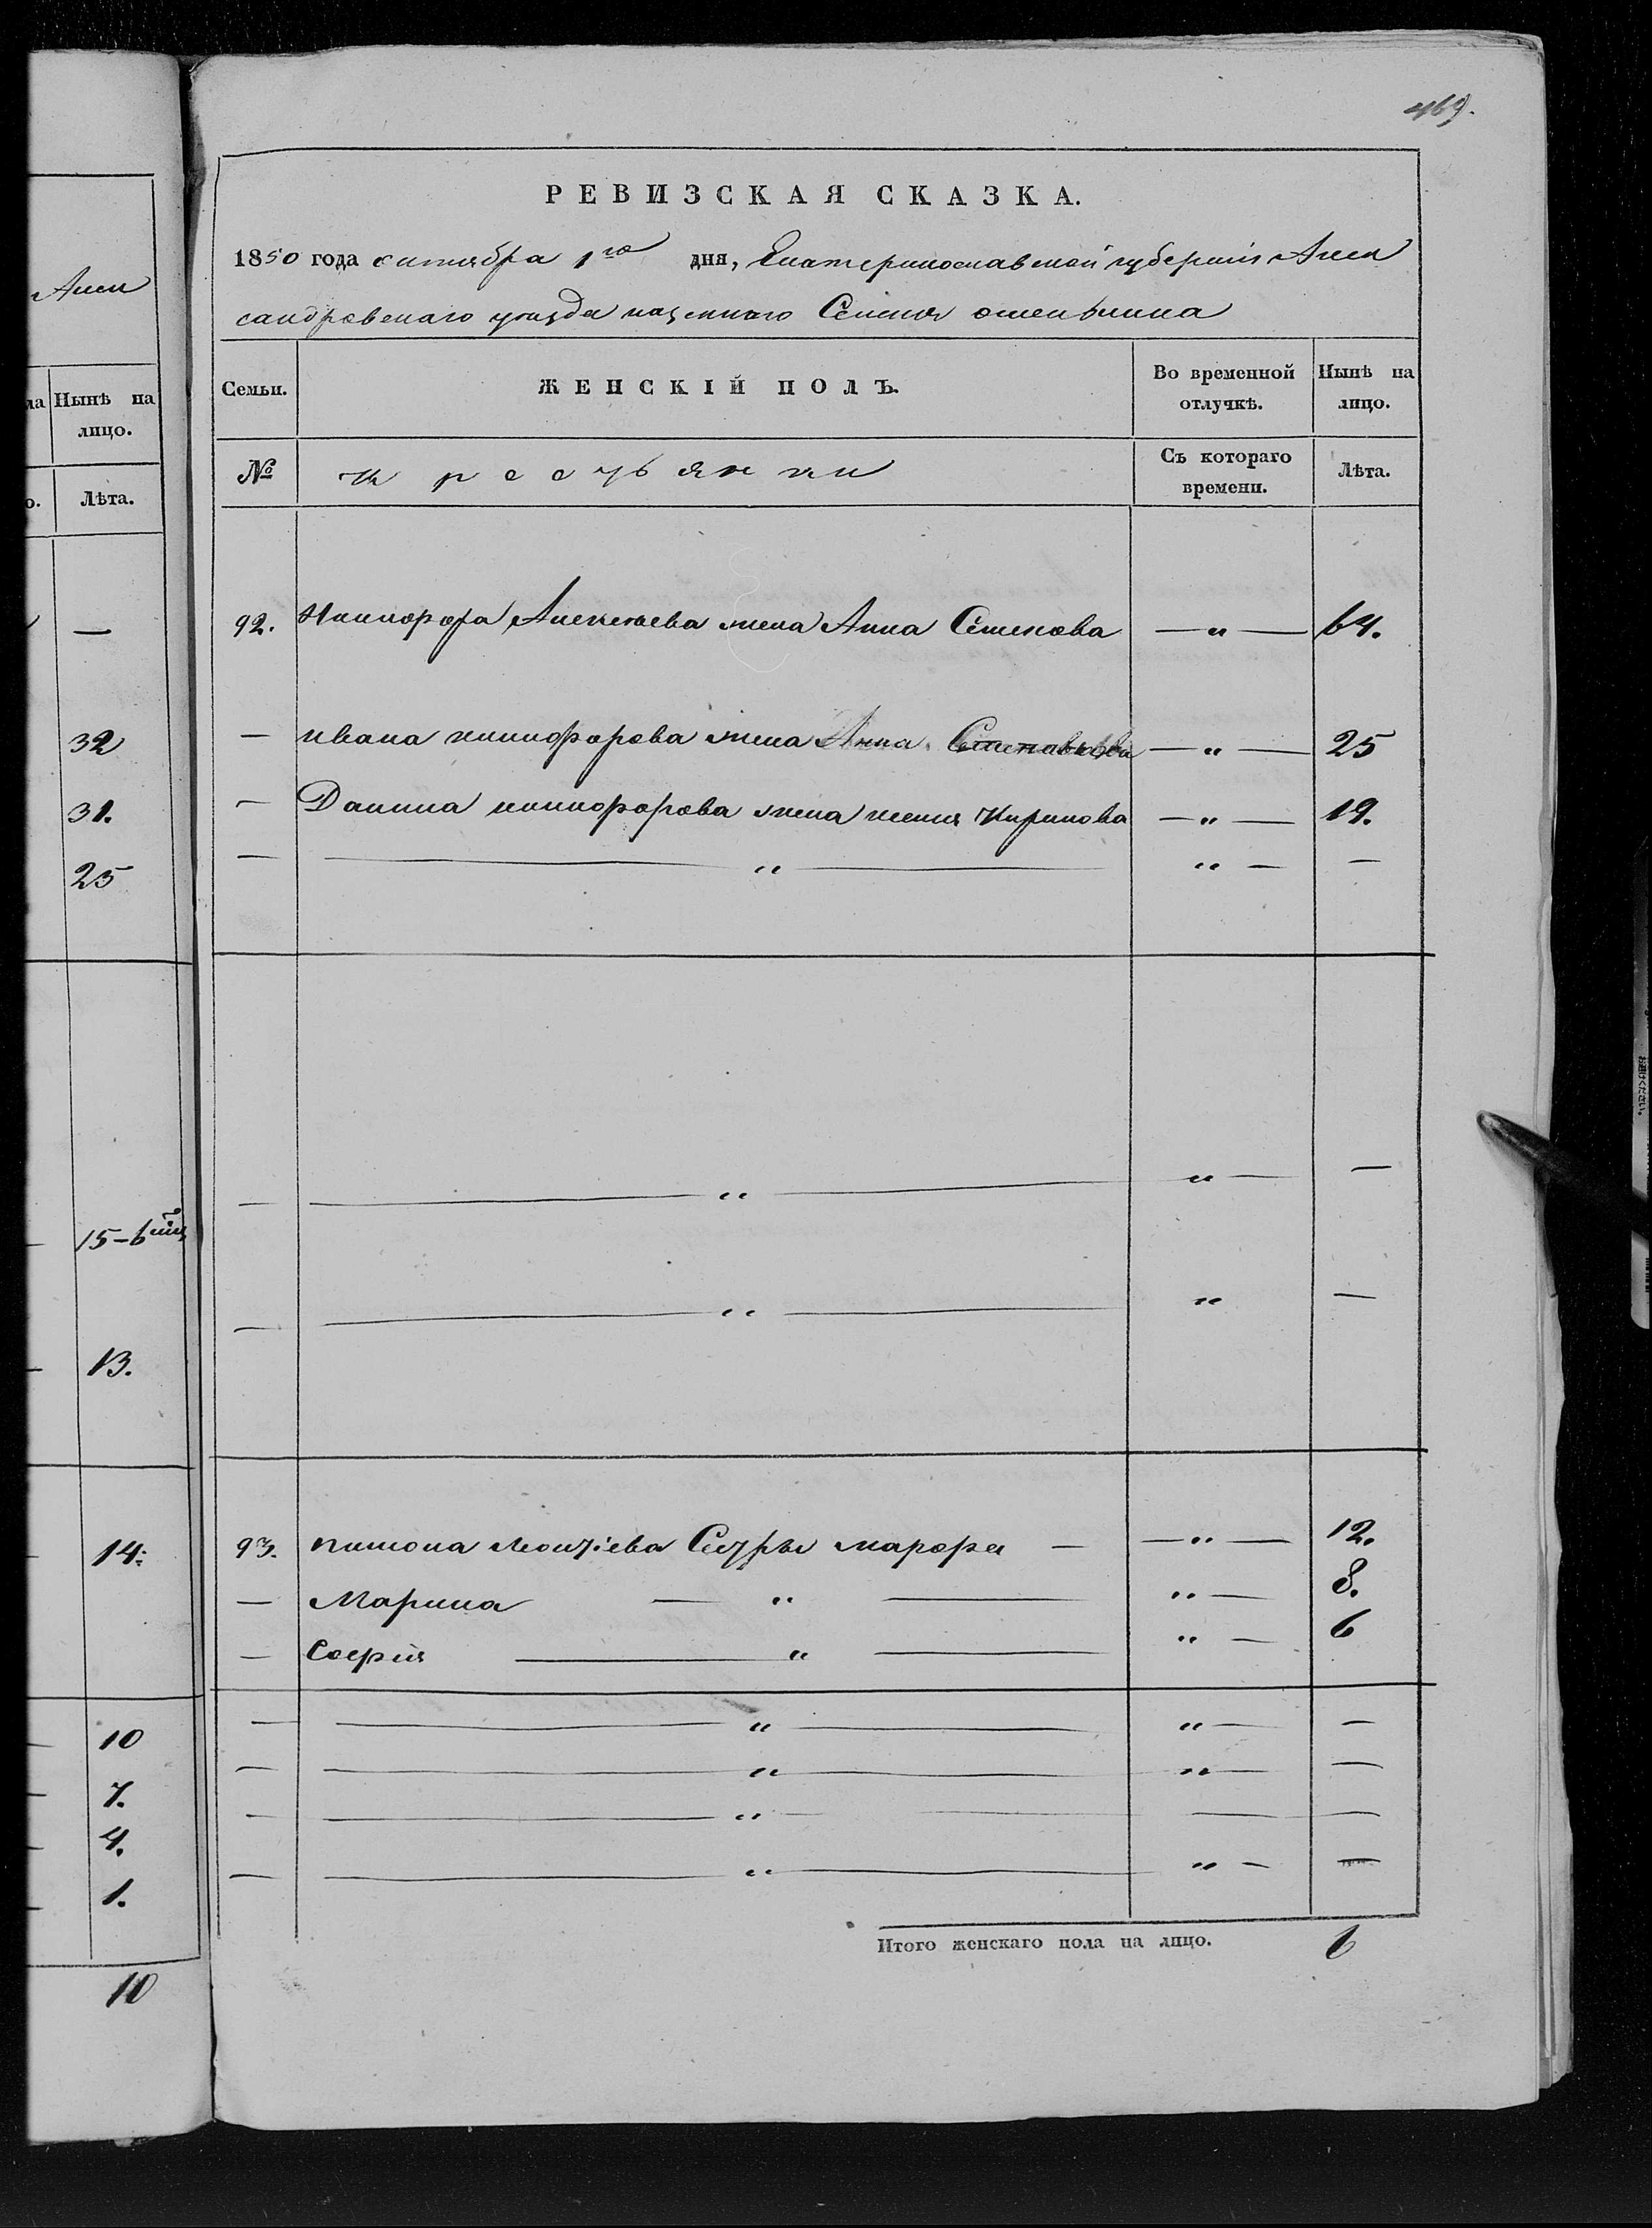 469.
РЕВИЗСКАЯ СКАЗКА.
1850 года октября 1го дня, Екатеринославской губернiи Алек
сандровскаго уезда казеннаго Селенiя
Семьи. ЖЕНСКIЙ ПОЛЪ. Во временной отлучкѣ. Нынѣ на лицо.
№ крестьянки Съ котораго времени. Лѣта.
92. Никифора Алексѣева жена Анна Семенова — „ — 64.
— ивана никифорова жена Анна — „ — 25
— Данила никифорова жена Кирилова — „ — 19.
— „ — „ — —
— „ — „ — —
— „ — „ —
93. Леонтiева Сестры — — „ — 12.
— Марина — „ — „ — 8.
— Софiя — „ — „ — 6
— „ — „ — —
— „ — „ — —
— „ — — —
— „ — „ — —
Итого женскаго пола на лицо. 6
Алек
ла Нынѣ на лицо.
о. Лѣта.
—
32
31.
25
15-6
13.
14.
10
7.
4.
1.
10